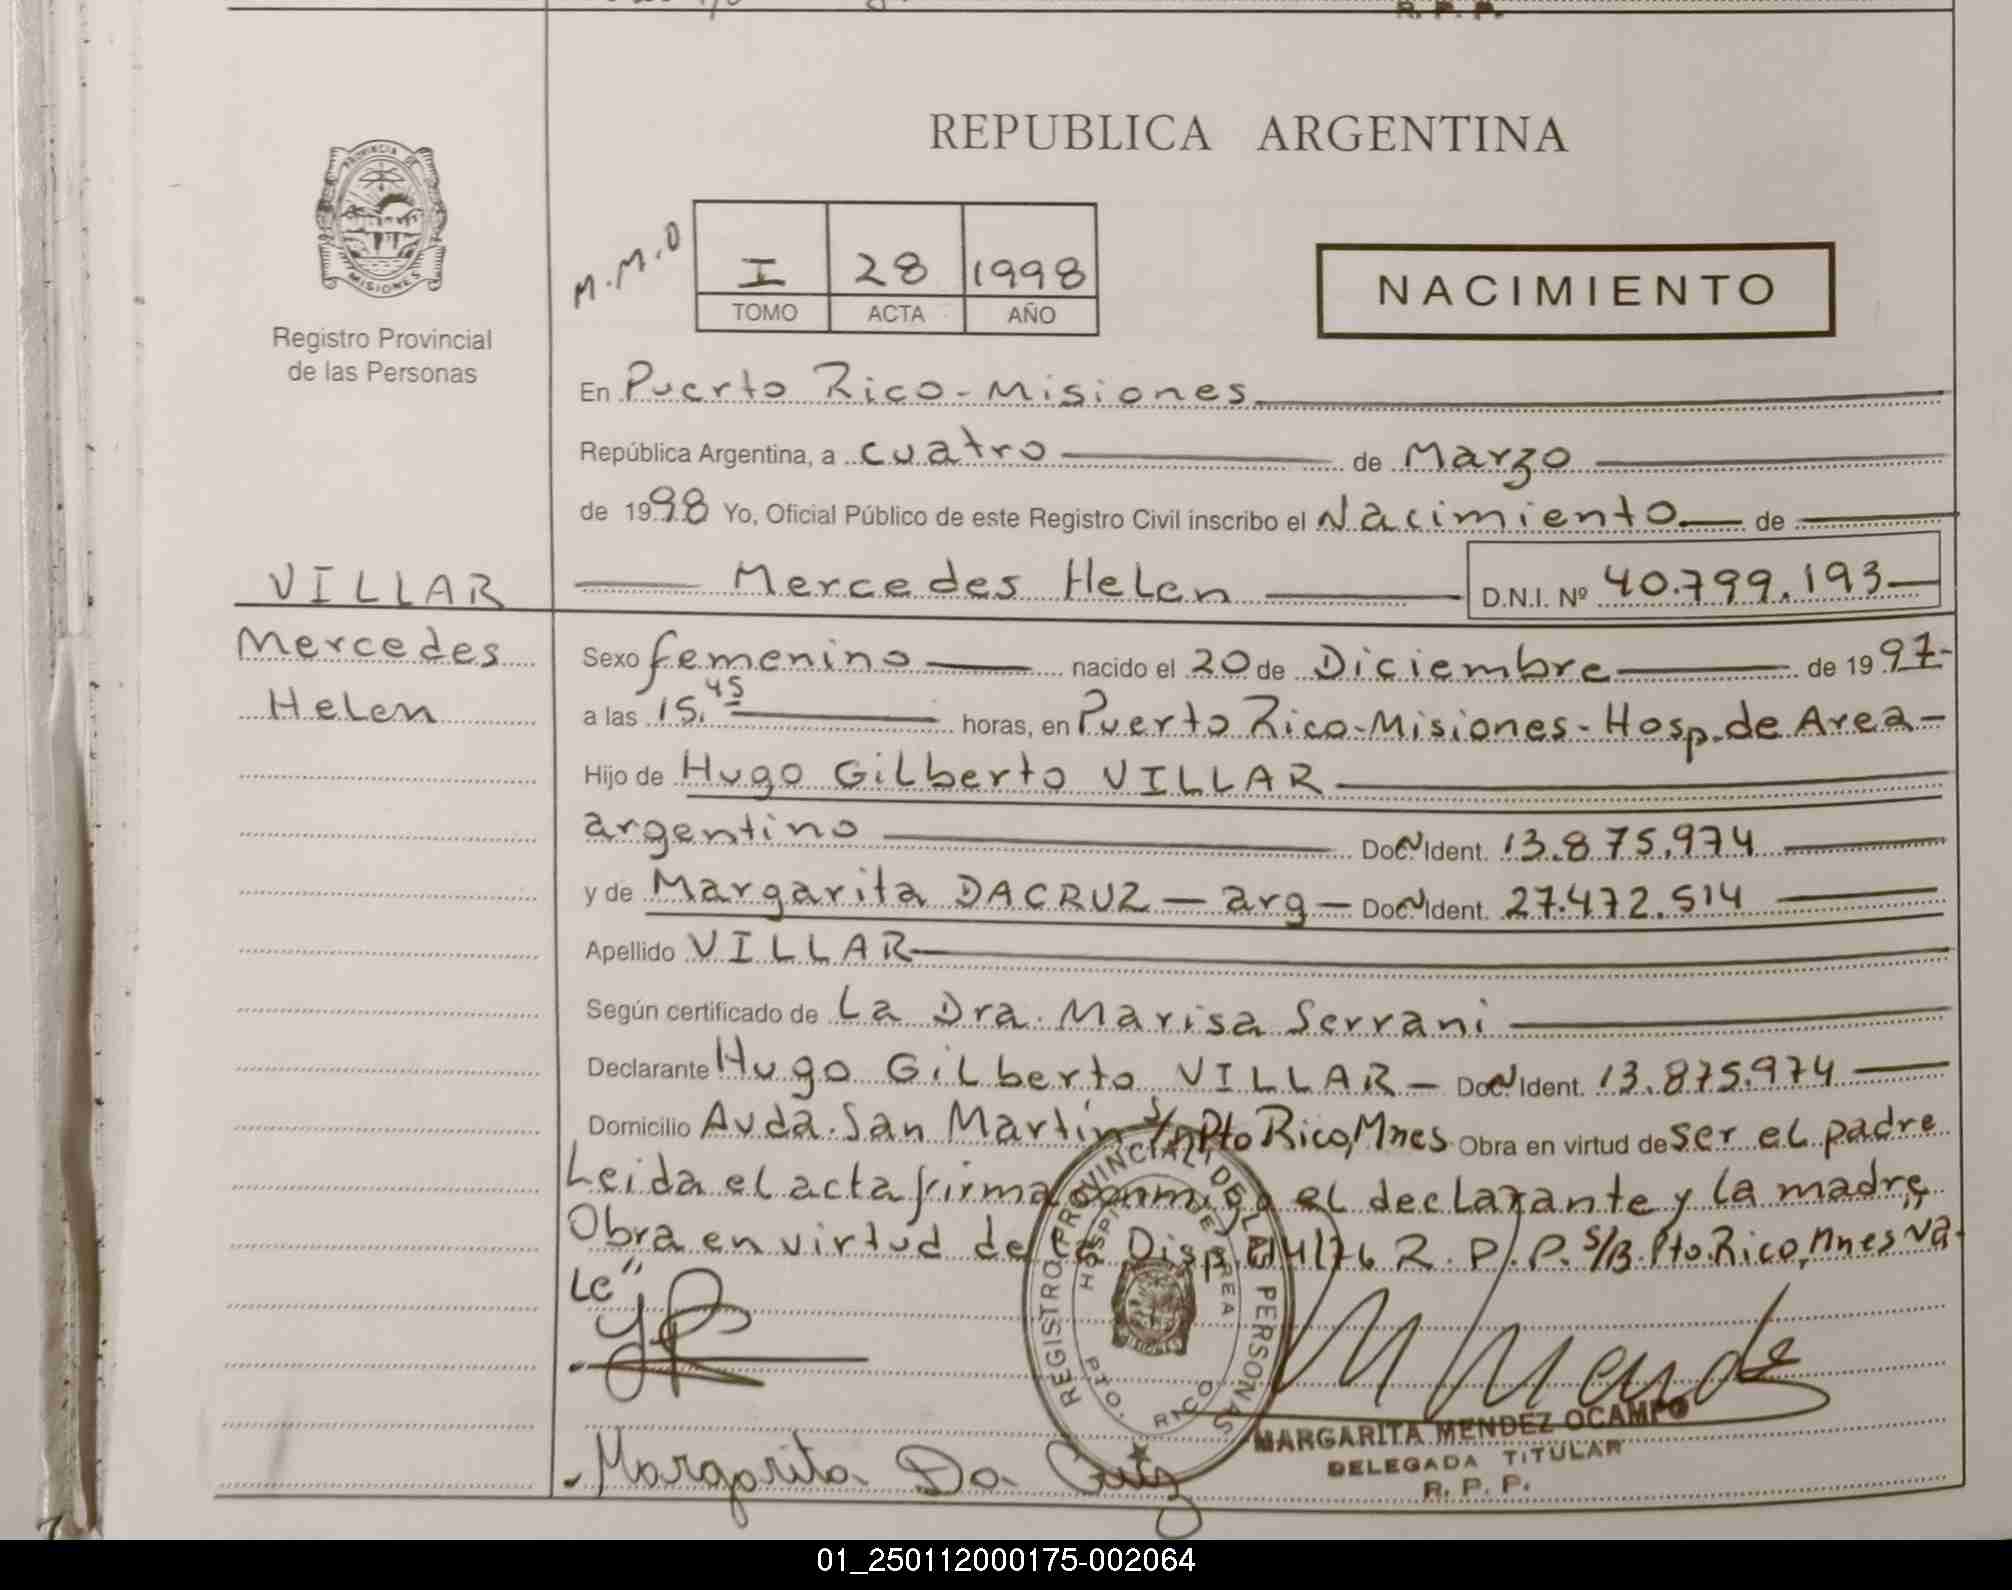 R. P. P.
PROVINCIA DE
MISIONES
Registro Provincial
de las Personas
REPUBLICA ARGENTINA
M.M.O
I 28 1998
TOMO ACTA AÑO
NACIMIENTO
En Puerto Rico-Misiones
República Argentina, a cuatro de Marzo
de 1998 Yo, Oficial Público de este Registro Civil inscribo el Nacimiento de
VILLAR Mercedes Helen D.N.I. Nº 40.799.193
Mercedes Sexo femenino nacido el 20 de Diciembre de 1997-
Helen a las 15.45 horas, en Puerto Rico-Misiones-Hosp.de Area-
Hijo de Hugo Gilberto VILLAR
argentino Doc. Ident. 13.875.974
y de Margarita DACRUZ - arg - Doc. Ident. 27.472.514
Apellido VILLAR
Según certificado de La Dra. Marisa Serrani
Declarante Hugo Gilberto VILLAR - Doc. Ident. 13.875.974
Domicilio Avda. San Martín s/n Pto Rico, Mnes Obra en virtud de ser el padre
Leida el acta firma conmigo el declarante y la madre,"
Obra en virtud de la Disp. 414/76 R. P. P. S/B. Pto. Rico, Mnes Va-
Le"
REGISTRO PROVINCIAL DE LAS PERSONAS
HOSPITAL DE AREA
PTO. RICO
M Mende
MARGARITA MENDEZ OCAMPO
DELEGADA TITULAR
R. P. P.
Margarita Da Cruz
01_250112000175-002064